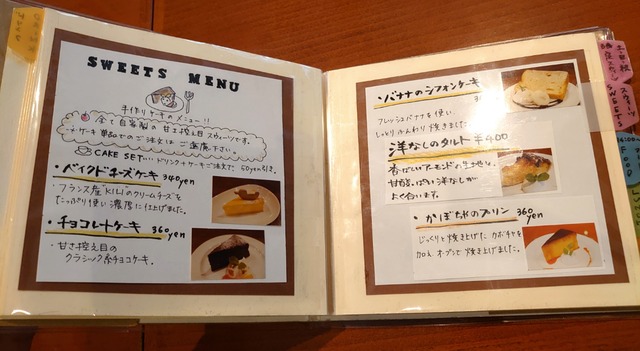 SWEETS MENU
手作りケーキのメニュー!!
全て自家製の甘さ控え目スウィーツです。
ケーキ単品でのご注文はご遠慮下さい。
CAKE SET... ドリンク+ケーキご注文で 50yen引き。
・ベイクドチーズケーキ 340yen
フランス産KILIのクリームチーズを
たっぷり使い濃厚に仕上げました。
・チョコレートケーキ 360yen
・甘さ控え目の
クラシック系チョコケーキ。
・バナナのシフォンケーキ
フレッシュバナナを使い
しっとりふんわり焼きました
洋なしのタルト ¥400
香ばしいアーモンドの生地と
甘酸っぱい洋なしが
よく合います。
・かぼちゃのプリン 360yen
じっくりと焼き上げたカボチャを
加え オーブンで焼き上げました。
スウィーツ
SWEETS
FOOD